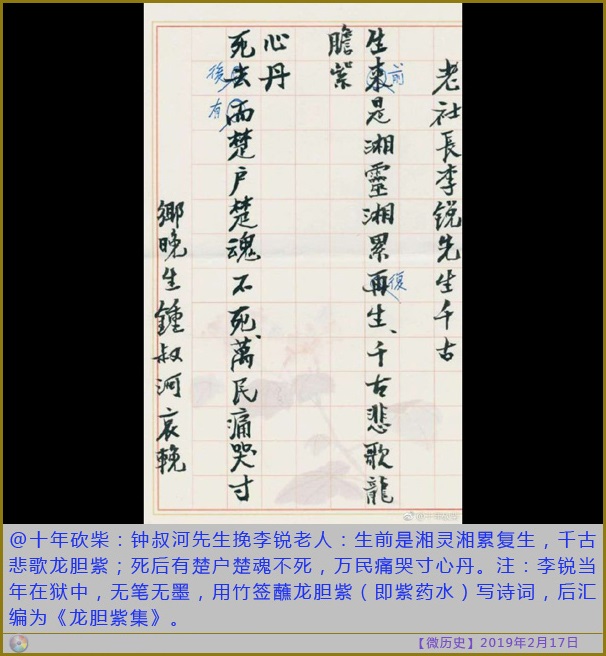 老社長李銳先生千古
生来是湘靈湘累再生、千古悲歌龍
前
復
膽紫
死去而楚户楚魂不死、萬民痛哭寸
後
有
心丹
鄉晚生鍾叔河哀輓
@十年砍柴
@十年砍柴：钟叔河先生挽李锐老人：生前是湘灵湘累复生，千古
悲歌龙胆紫；死后有楚户楚魂不死，万民痛哭寸心丹。注：李锐当
年在狱中，无笔无墨，用竹签蘸龙胆紫（即紫药水）写诗词，后汇
编为《龙胆紫集》。
【微历史】2019年2月17日